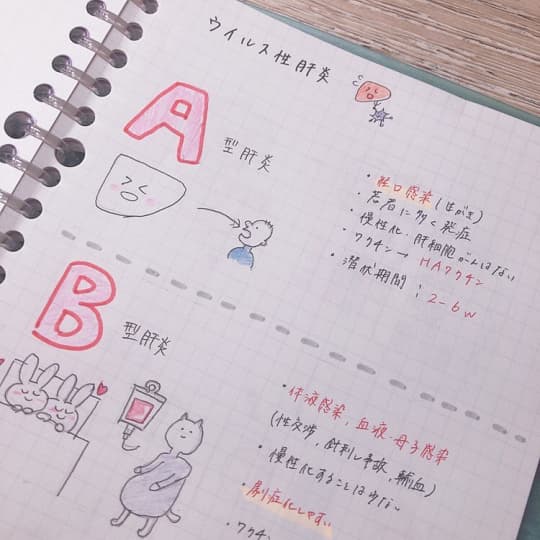 ウイルス性肝炎
A型肝炎
・経口感染(生がき)
・若者に多く発症
・慢性化、肝細胞がんはない
・ワクチン→HAワクチン
・潜伏期間:2-6w
B型肝炎
・体液感染、血液、母子感染
(性交渉、針刺し事故、輸血)
・慢性化することは少ない
・劇症化しやすい
・ワクチン